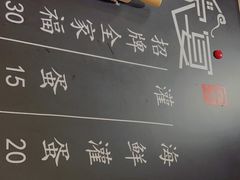 招牌全家福 30
灌蛋 15
海鲜灌蛋 20